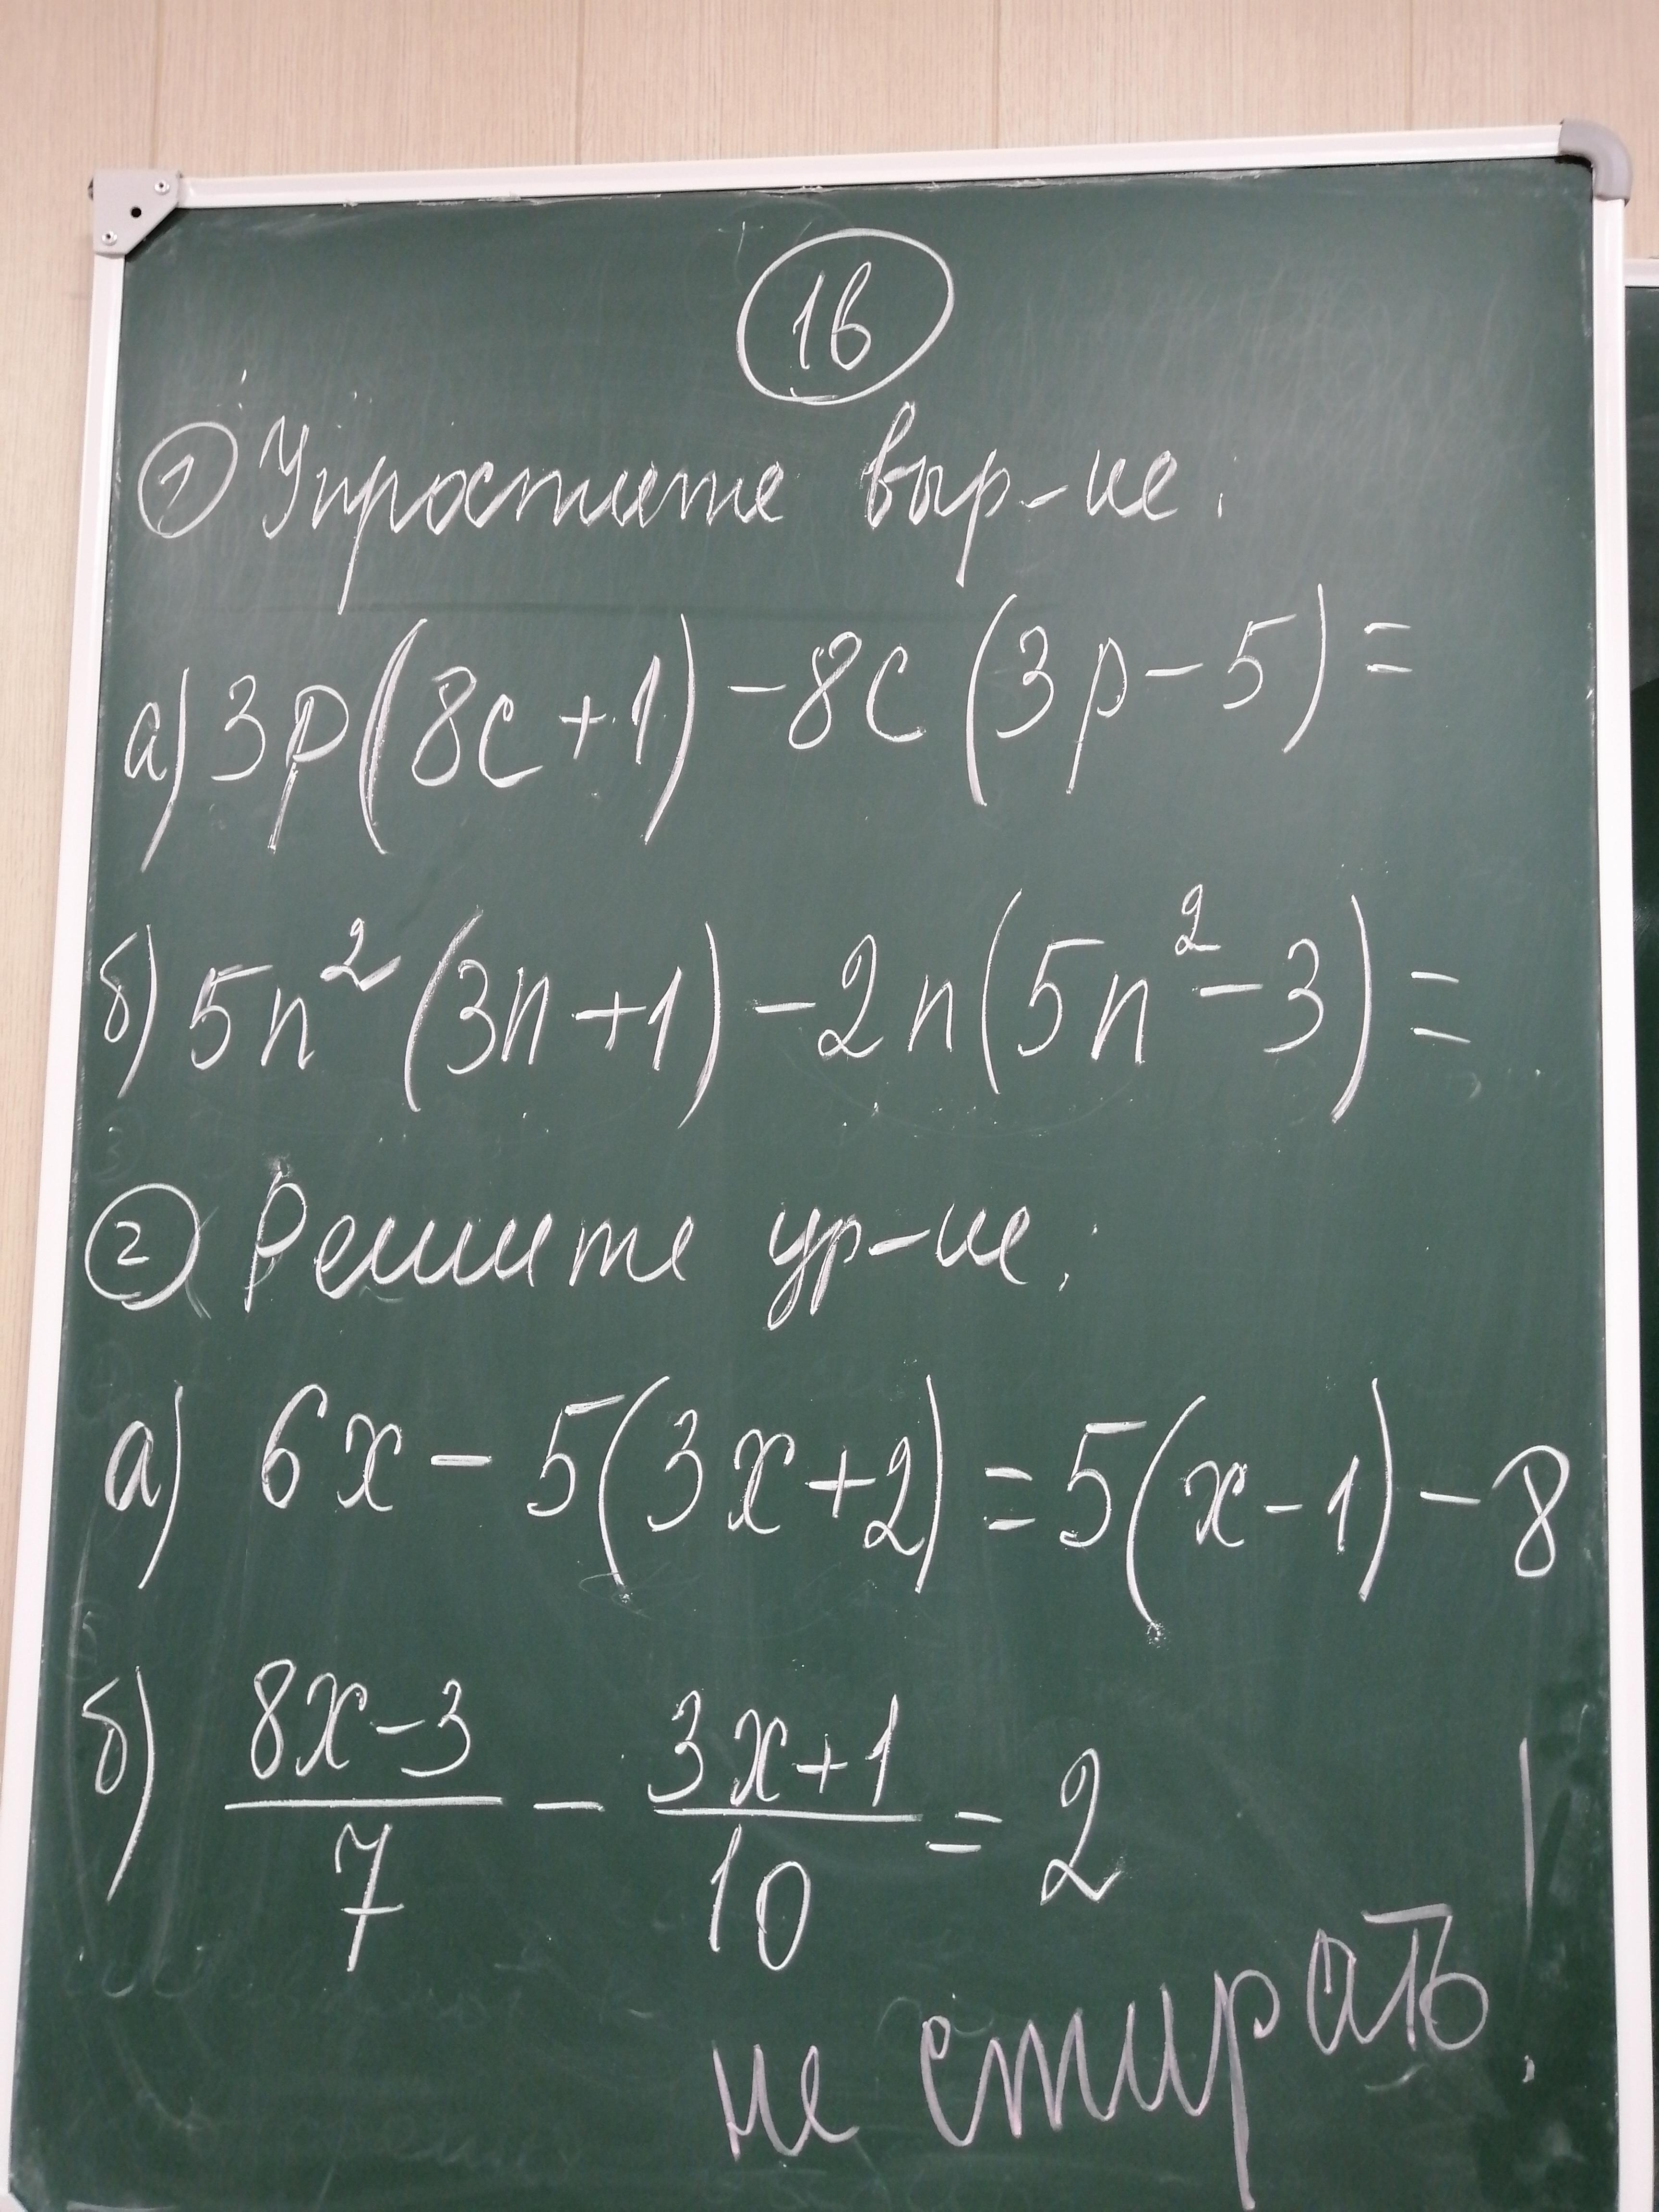 1в
① Упростите выр-ие:
а) 3p(8c+1)-8c(3p-5)=
б) 5n²(3n+1)-2n(5n²-3)=
② Решите ур-ие:
а) 6x-5(3x+2)=5(x-1)-8
б) (8x-3)/7 - (3x+1)/10 = 2
не стирать!